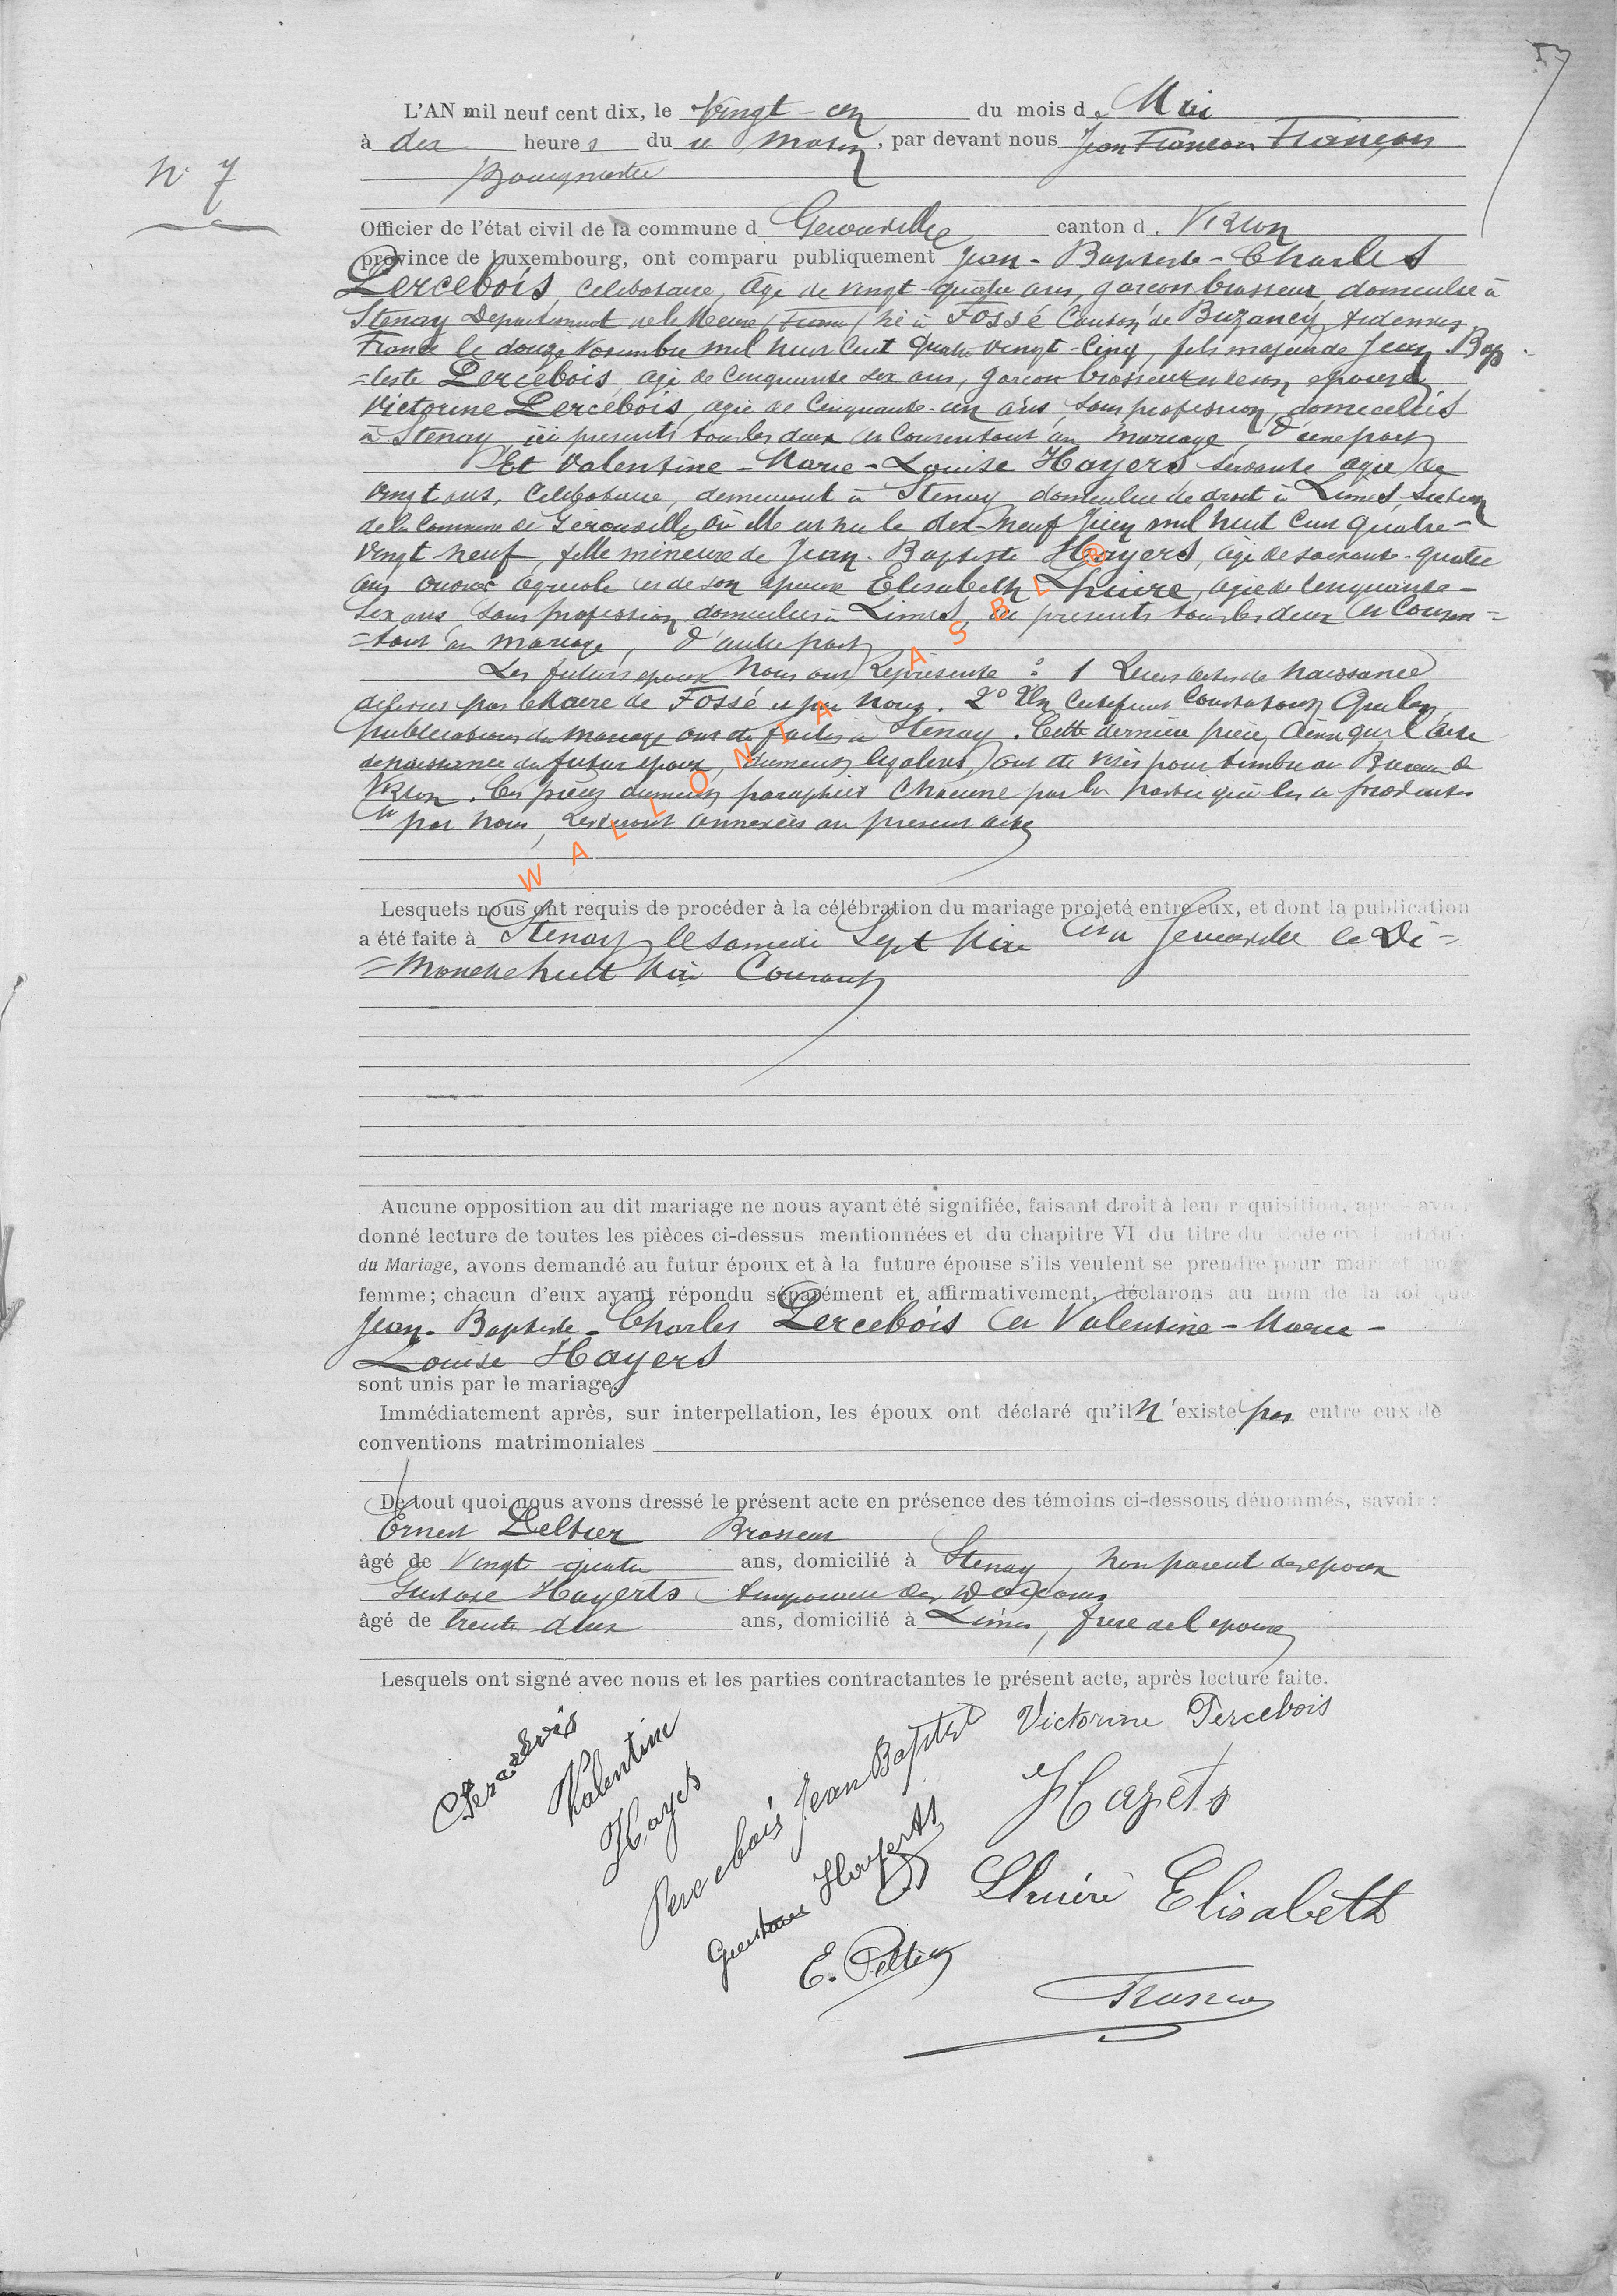 57
L'AN mil neuf cent dix, le Vingt-un du mois de Mai
N° 7
à dix heures du u matin, par devant nous Jean François François
Bourgmestre
Officier de l'état civil de la commune d Gerouville canton d. Virton
province de Luxembourg, ont comparu publiquement Jean-Baptiste-Charles
Percebois, célibataire, âgé de vingt-quatre ans, garçon brasseur, domicilié à
Stenay Departement de la Meuse (France) né à Fossé Canton de Buzancy Ardennes
France le douze Novembre mil huit cent quatre vingt-cinq, fils majeur de Jean Bap
=tiste Percebois, agé de cinquante six ans, garçon brasseur et de son epouse
Victorine Percebois, agée de Cinquante-un ans, sans profession, domiciliés
à Stenay, ici presents tous les deux et Consentant au mariage, d'une part
Et Valentine-Marie-Louise Hayers servante agée de
vingt ans, Celibataire, demeurant à Stenay domiciliée de droit à Limes, section
de la Commune de Gérouville, où elle est née le dix-neuf Juin mil huit Cent quatre-
vingt neuf, fille mineure de Jean-Baptiste Hayers, âgé de soixante-quatre
ans ouvrier agricole et de son epouse Elisabeth Lhuire, agée de Cinquante-
six ans sans profession, domiciliés à Limes, ici presents tous les deux et Consen=
=tant au mariage, d'autre part
Les futurs epoux Nous ont Représenté : 1 Leurs actes de Naissance
délivrés par le Maire de Fossé et par Nous. 2° Un Certificat Constatant Que les
publications du Mariage ont été faites à Stenay. Cette dernière pièce, Ainsi que l'acte
de naissance du futur epoux, dument légalisés, ont été visés pour timbre au Bureau de
Virton. Ces pièces dument paraphées Chacune par la Partie qui les a produites
et par Nous, resteront annexées au present acte
WALLONIA ASBL ®
Lesquels nous ont requis de procéder à la célébration du mariage projeté entre eux, et dont la publication
a été faite à Stenay le samedi Sept Mai et à Gerouville le Di=
=manche huit Mai Courant
Aucune opposition au dit mariage ne nous ayant été signifiée, faisant droit à leur r quisition, après avoir
donné lecture de toutes les pièces ci-dessus mentionnées et du chapitre VI du titre du Code civil intitulé
du Mariage, avons demandé au futur époux et à la future épouse s'ils veulent se prendre pour mari et pour
femme; chacun d'eux ayant répondu séparément et affirmativement, déclarons au nom de la loi que
Jean-Baptiste-Charles Percebois et Valentine-Marie-
Louise Hayers
sont unis par le mariage.
Immédiatement après, sur interpellation, les époux ont déclaré qu'il n'existe pas entre eux de
conventions matrimoniales
De tout quoi nous avons dressé le présent acte en présence des témoins ci-dessous dénommés, savoir :
Ernest Peltier Brasseur
âgé de Vingt-quatre ans, domicilié à Stenay, non parent des epoux
Gustave Hayerts
âgé de trente deux ans, domicilié à Limes, frere de l'epouse
Lesquels ont signé avec nous et les parties contractantes le présent acte, après lecture faite.
Percebois
Valentine Hayets
Percebois Jean Baptiste
Victorine Percebois
Gustave Hayerts
Hayets
Lhuire Elisabeth
E. Peltier
François